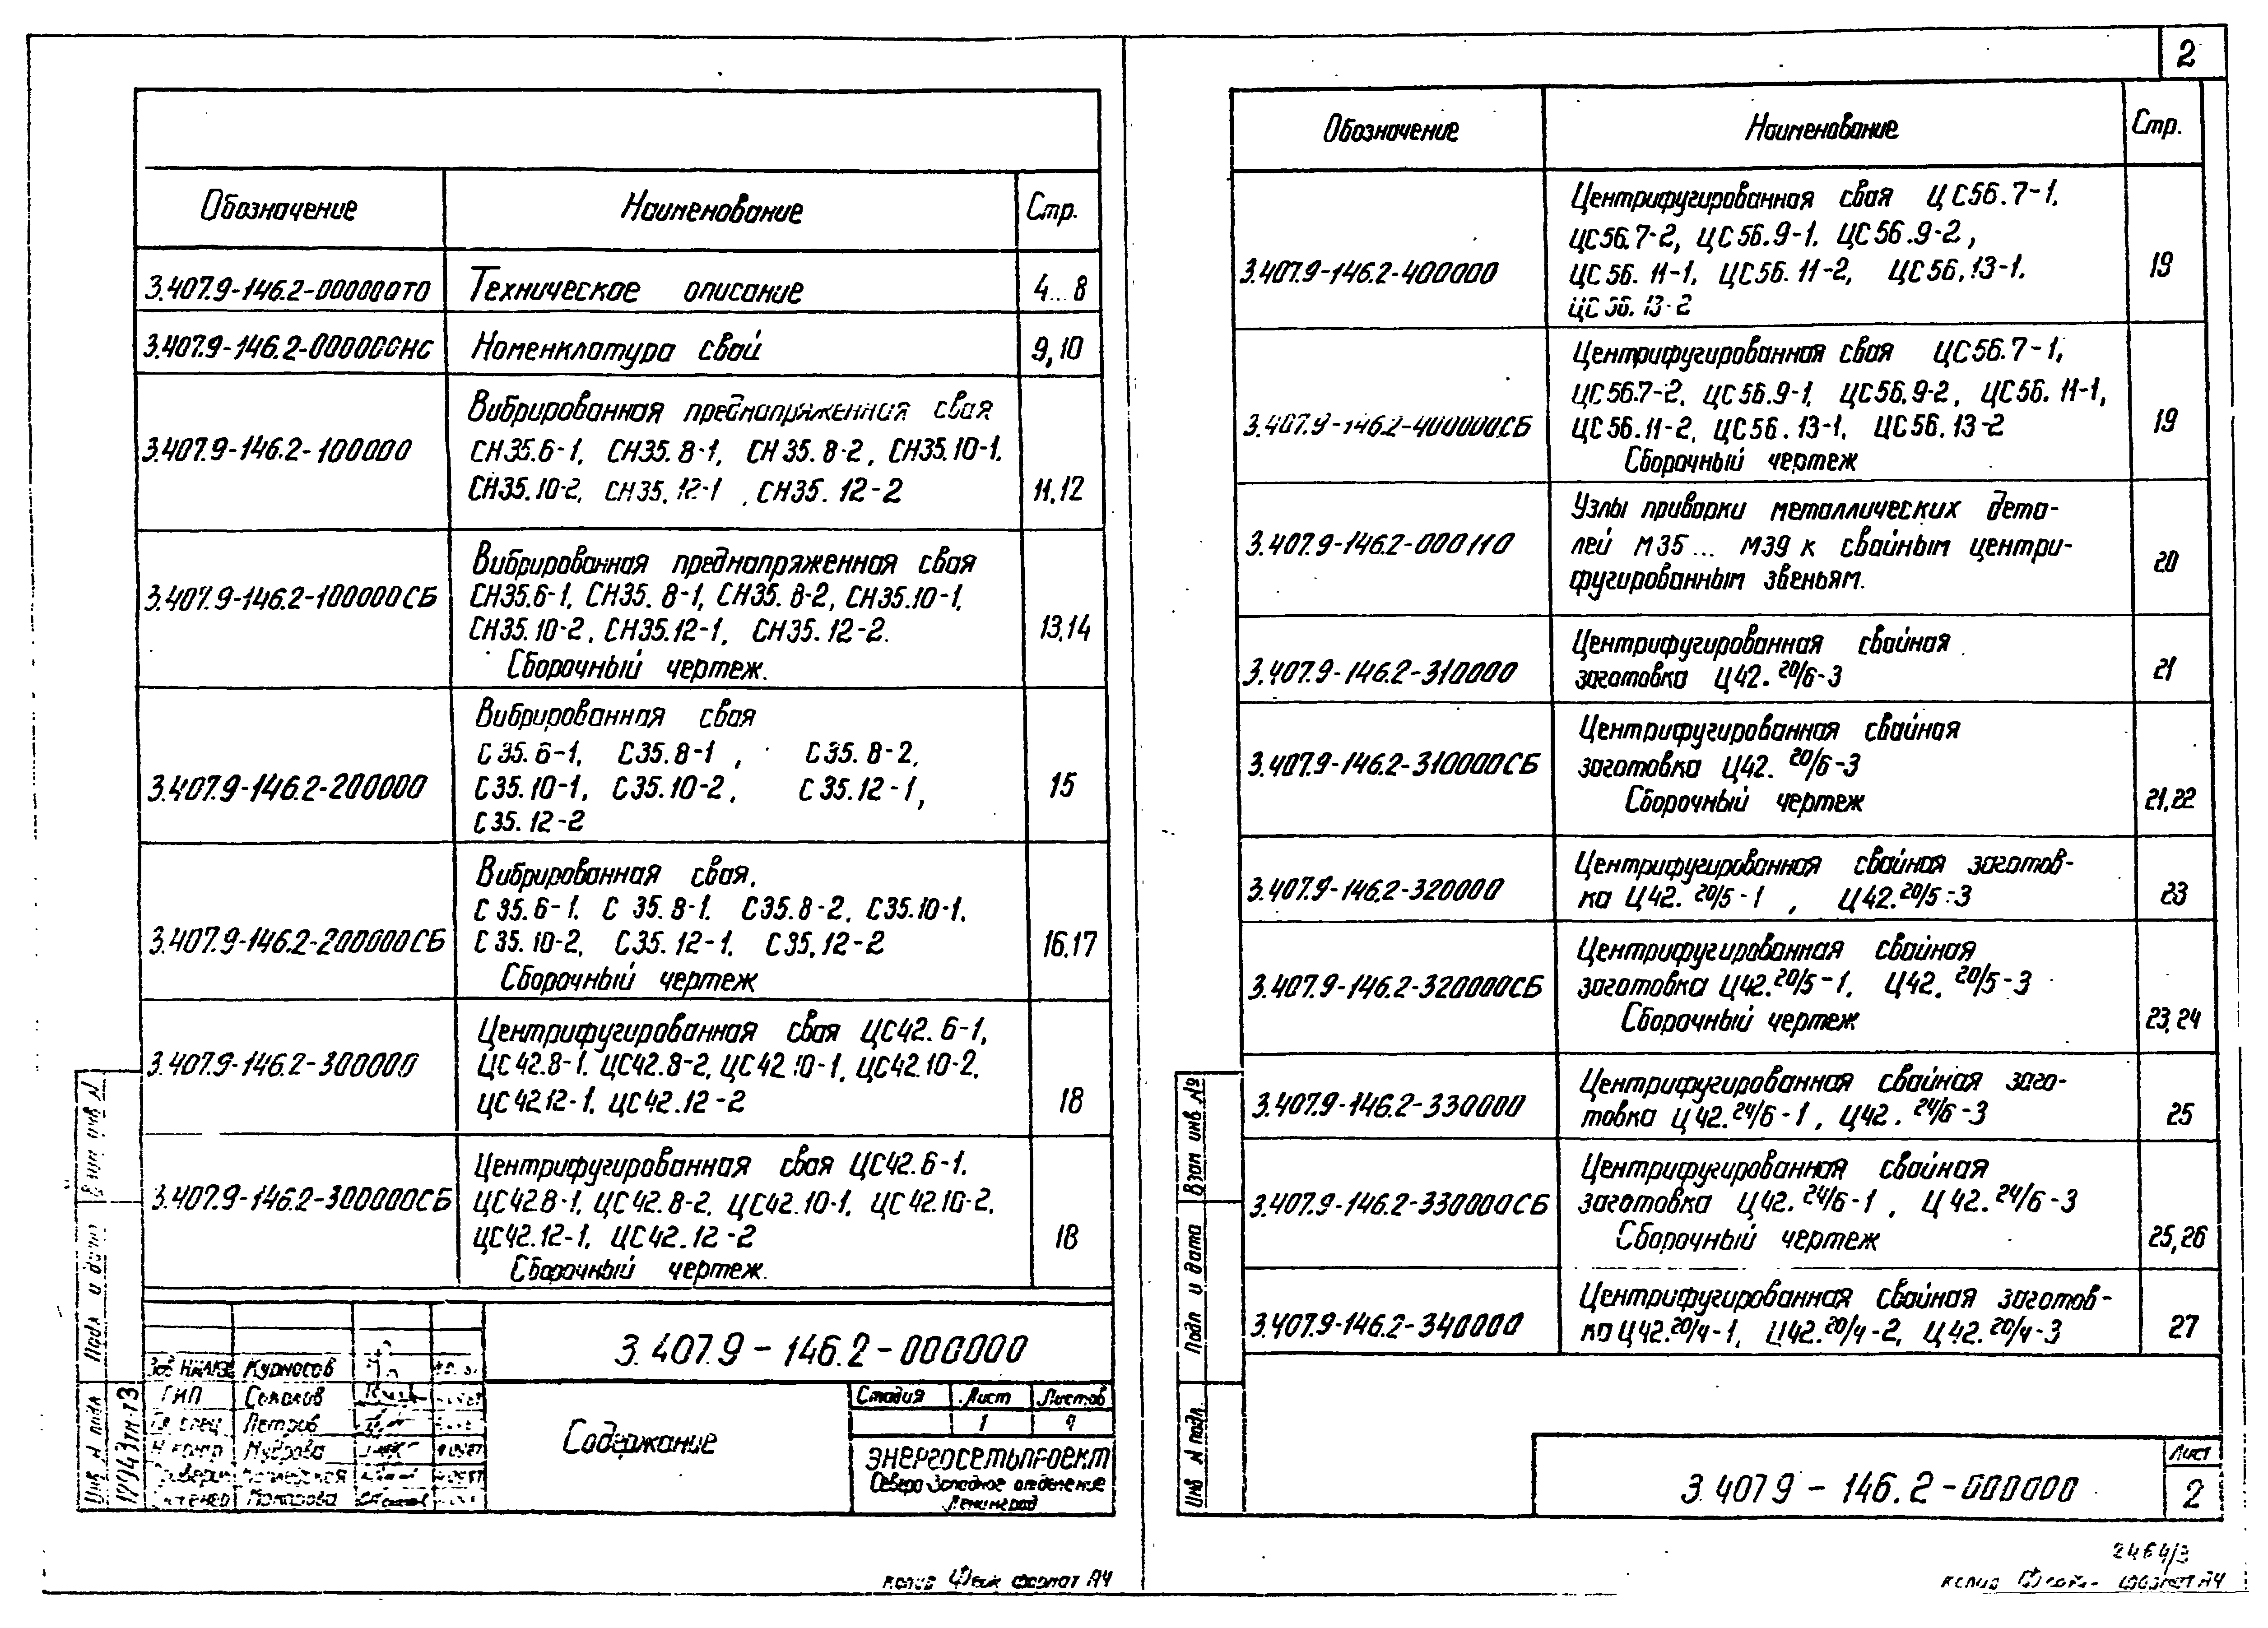 Обозначение
Наименование
Стр.
3.407.9-146.2-000000ТО
Техническое описание
4...8
3.407.9-146.2-000000НС
Номенклатура свай
9,10
3.407.9-146.2-100000
Вибрированная преднапряженная свая
СН35.6-1, СН35.8-1, СН35.8-2, СН35.10-1,
СН35.10-2, СН35.12-1, СН35.12-2
11,12
3.407.9-146.2-100000СБ
Вибрированная преднапряженная свая
СН35.6-1, СН35.8-1, СН35.8-2, СН35.10-1,
СН35.10-2, СН35.12-1, СН35.12-2.
Сборочный чертеж.
13,14
3.407.9-146.2-200000
Вибрированная свая
С35.6-1, С35.8-1, С35.8-2,
С35.10-1, С35.10-2, С35.12-1,
С35.12-2
15
3.407.9-146.2-200000СБ
Вибрированная свая,
С35.6-1, С35.8-1, С35.8-2, С35.10-1,
С35.10-2, С35.12-1, С35.12-2
Сборочный чертеж
16,17
3.407.9-146.2-300000
Центрифугированная свая ЦС42.6-1,
ЦС42.8-1, ЦС42.8-2, ЦС42.10-1, ЦС42.10-2,
ЦС4212-1, ЦС42.12-2
18
3.407.9-146.2-300000СБ
Центрифугированная свая ЦС42.6-1,
ЦС42.8-1, ЦС42.8-2, ЦС42.10-1, ЦС42.10-2,
ЦС42.12-1, ЦС42.12-2
Сборочный чертеж.
18
3.407.9-146.2-000000
Курносов
ГИП Соколов
Петров
Мудрова
Содержание
Стадия Лист Листов
1
ЭНЕРГОСЕТЬПРОЕКТ
Северо-Западное отделение
Ленинград
Подл и дата
Инв N подл
формат А4
2
Обозначение
Наименование
Стр.
3.407.9-146.2-400000
Центрифугированная свая ЦС56.7-1,
ЦС56.7-2, ЦС56.9-1, ЦС56.9-2,
ЦС56.11-1, ЦС56.11-2, ЦС56.13-1,
ЦС56.13-2
19
3.407.9-146.2-400000СБ
Центрифугированная свая ЦС56.7-1,
ЦС56.7-2, ЦС56.9-1, ЦС56.9-2, ЦС56.11-1,
ЦС56.11-2, ЦС56.13-1, ЦС56.13-2
Сборочный чертеж
19
3.407.9-146.2-000110
Узлы приварки металлических дета-
лей М35... М39 к свайным центри-
фугированным звеньям.
20
3.407.9-146.2-310000
Центрифугированная свайная
заготовка Ц42.20/6-3
21
3.407.9-146.2-310000СБ
Центрифугированная свайная
заготовка Ц42.20/6-3
Сборочный чертеж
21,22
3.407.9-146.2-320000
Центрифугированная свайная заготов-
ка Ц42.20/5-1, Ц42.20/5-3
23
3.407.9-146.2-320000СБ
Центрифугированная свайная
заготовка Ц42.20/5-1, Ц42.20/5-3
Сборочный чертеж
23,24
3.407.9-146.2-330000
Центрифугированная свайная заго-
товка Ц42.24/6-1, Ц42.24/6-3
25
3.407.9-146.2-330000СБ
Центрифугированная свайная
заготовка Ц42.24/6-1, Ц42.24/6-3
Сборочный чертеж
25,26
3.407.9-146.2-340000
Центрифугированная свайная заготов-
ка Ц42.20/4-1, Ц42.20/4-2, Ц42.20/4-3
27
Взам инв №
Подп и дата
Инв N подл.
3.407.9-146.2-000000
Лист
2
2464/3